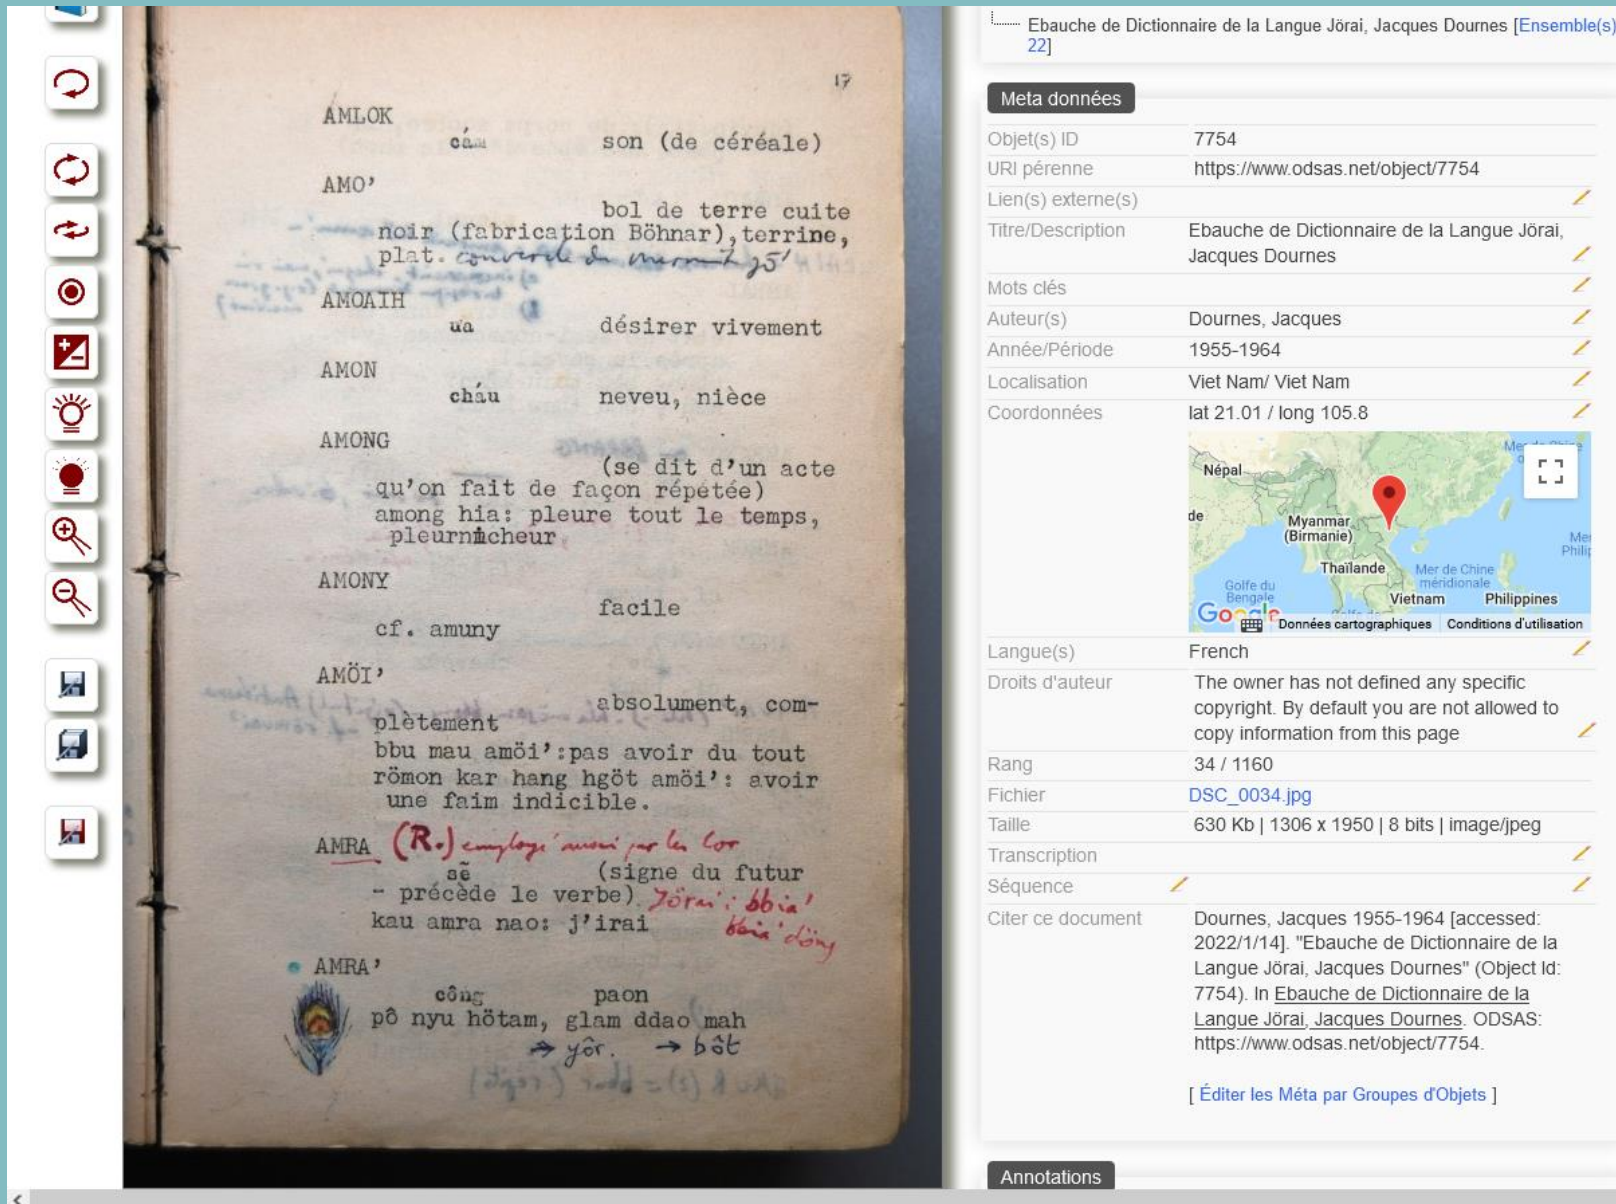 17
AMLOK
cám son (de céréale)
AMO'
bol de terre cuite
noir (fabrication Böhnar), terrine,
plat.
AMOAIH
ưa désirer vivement
AMON
cháu neveu, nièce
AMONG
(se dit d'un acte
qu'on fait de façon répétée)
among hia: pleure tout le temps,
pleurnicheur
AMONY
facile
cf. amuny
AMÖI'
absolument, com-
plètement
bbu mau amöi':pas avoir du tout
römon kar hang hgöt amöi': avoir
une faim indicible.
AMRA (R.) employé aussi par les Cor
sẽ (signe du futur
- précède le verbe) Jörai: bbia'
kau amra nao: j'irai bbia' döng
AMRA'
công paon
pô nyu hötam, glam ddao mah
→ yôr. → bôt
Ebauche de Dictionnaire de la Langue Jörai, Jacques Dournes [Ensemble(s)
22]
Meta données
Objet(s) ID 7754
URI pérenne https://www.odsas.net/object/7754
Lien(s) externe(s)
Titre/Description Ebauche de Dictionnaire de la Langue Jörai,
Jacques Dournes
Mots clés
Auteur(s) Dournes, Jacques
Année/Période 1955-1964
Localisation Viet Nam/ Viet Nam
Coordonnées lat 21.01 / long 105.8
Népal
de
Myanmar
(Birmanie)
Thaïlande
Mer de Chine
méridionale
Golfe du
Bengale
Vietnam Philippines
Google Données cartographiques Conditions d'utilisation
Langue(s) French
Droits d'auteur The owner has not defined any specific
copyright. By default you are not allowed to
copy information from this page
Rang 34 / 1160
Fichier DSC_0034.jpg
Taille 630 Kb | 1306 x 1950 | 8 bits | image/jpeg
Transcription
Séquence
Citer ce document Dournes, Jacques 1955-1964 [accessed:
2022/1/14]. "Ebauche de Dictionnaire de la
Langue Jörai, Jacques Dournes" (Object Id:
7754). In Ebauche de Dictionnaire de la
Langue Jörai, Jacques Dournes. ODSAS:
https://www.odsas.net/object/7754.
[ Éditer les Méta par Groupes d'Objets ]
Annotations